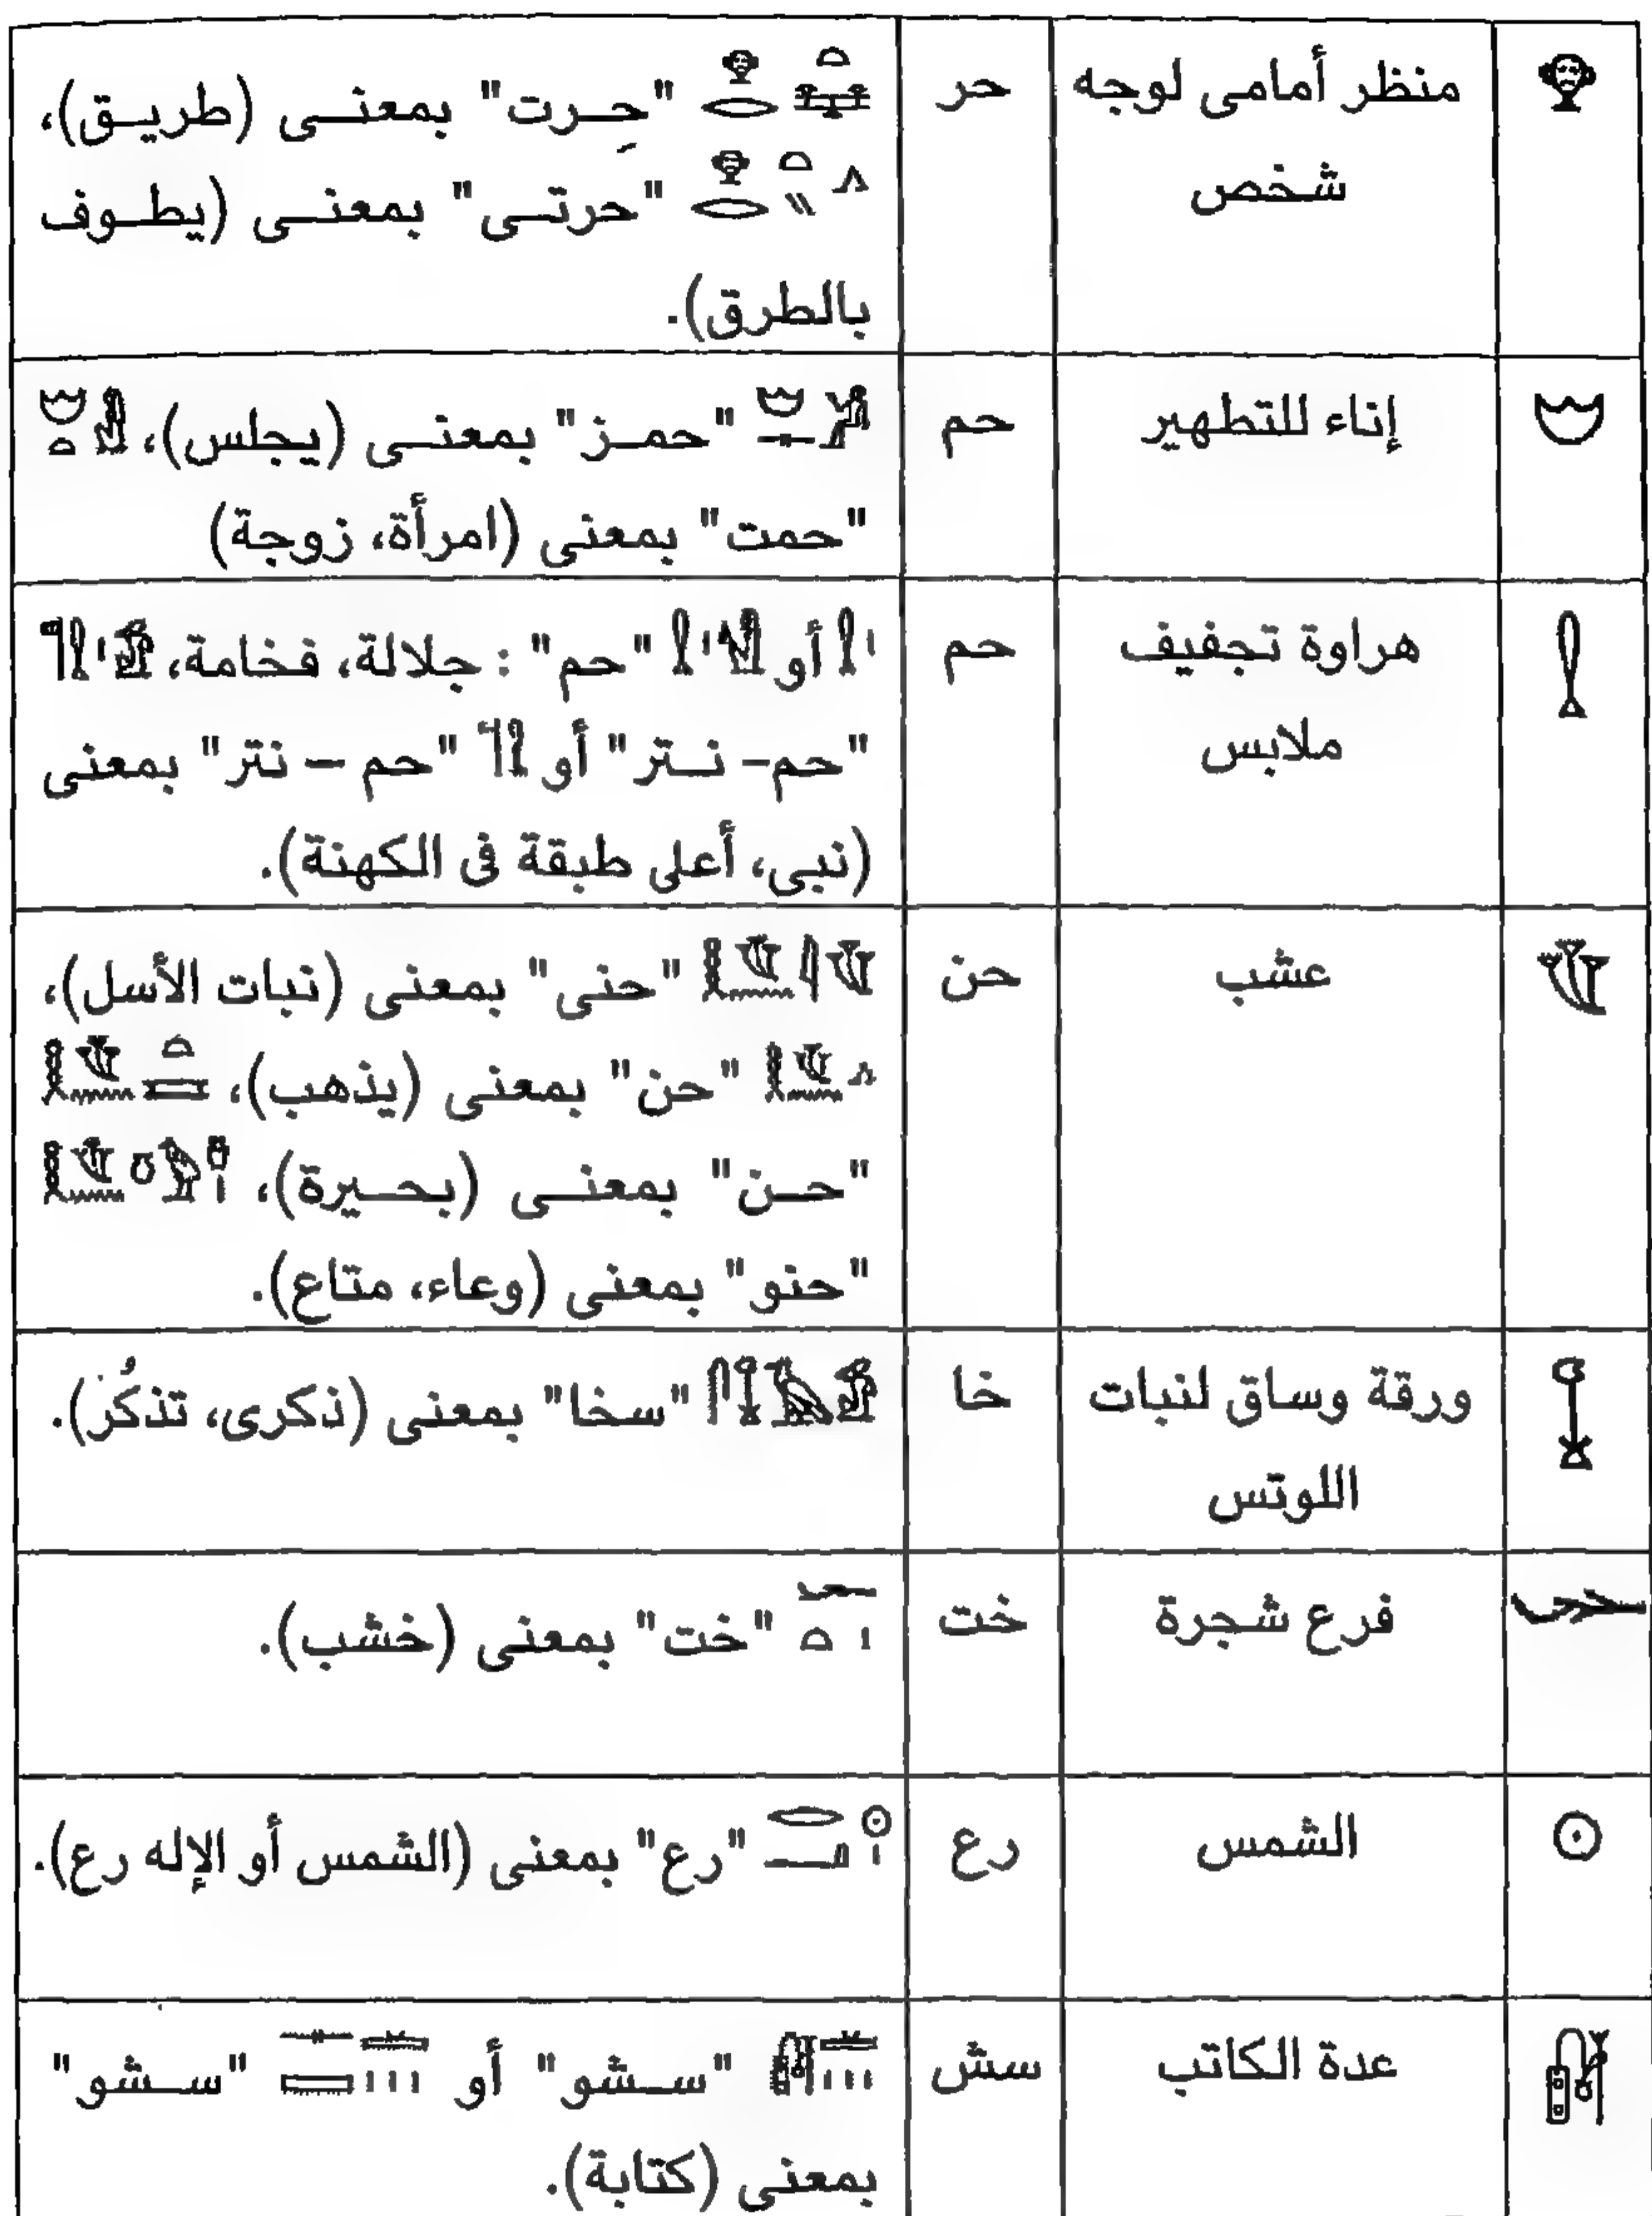 منظر أمامى لوجه
شخص
حر
"حِرت" بمعنى (طريق)،
"حرتى" بمعنى (يطوف
بالطرق).
إناء للتطهير
حم
"حمز" بمعنى (يجلس)،
"حمت" بمعنى (امرأة، زوجة)
هراوة تجفيف
ملابس
حم
أو "حم" : جلالة، فخامة،
"حم- نتر" أو "حم – نتر" بمعنى
(نبى، أعلى طبقة فى الكهنة).
عشب
حن
"حنى" بمعنى (نبات الأسل)،
"حن" بمعنى (يذهب)،
"حن" بمعنى (بحيرة)،
"حنو" بمعنى (وعاء، متاع).
ورقة وساق لنبات
اللوتس
خا
"سخا" بمعنى (ذكرى، تذكُر).
فرع شجرة
خت
"خت" بمعنى (خشب).
الشمس
رع
"رع" بمعنى (الشمس أو الإله رع).
عدة الكاتب
سش
"سشو" أو "سشو"
بمعنى (كتابة).